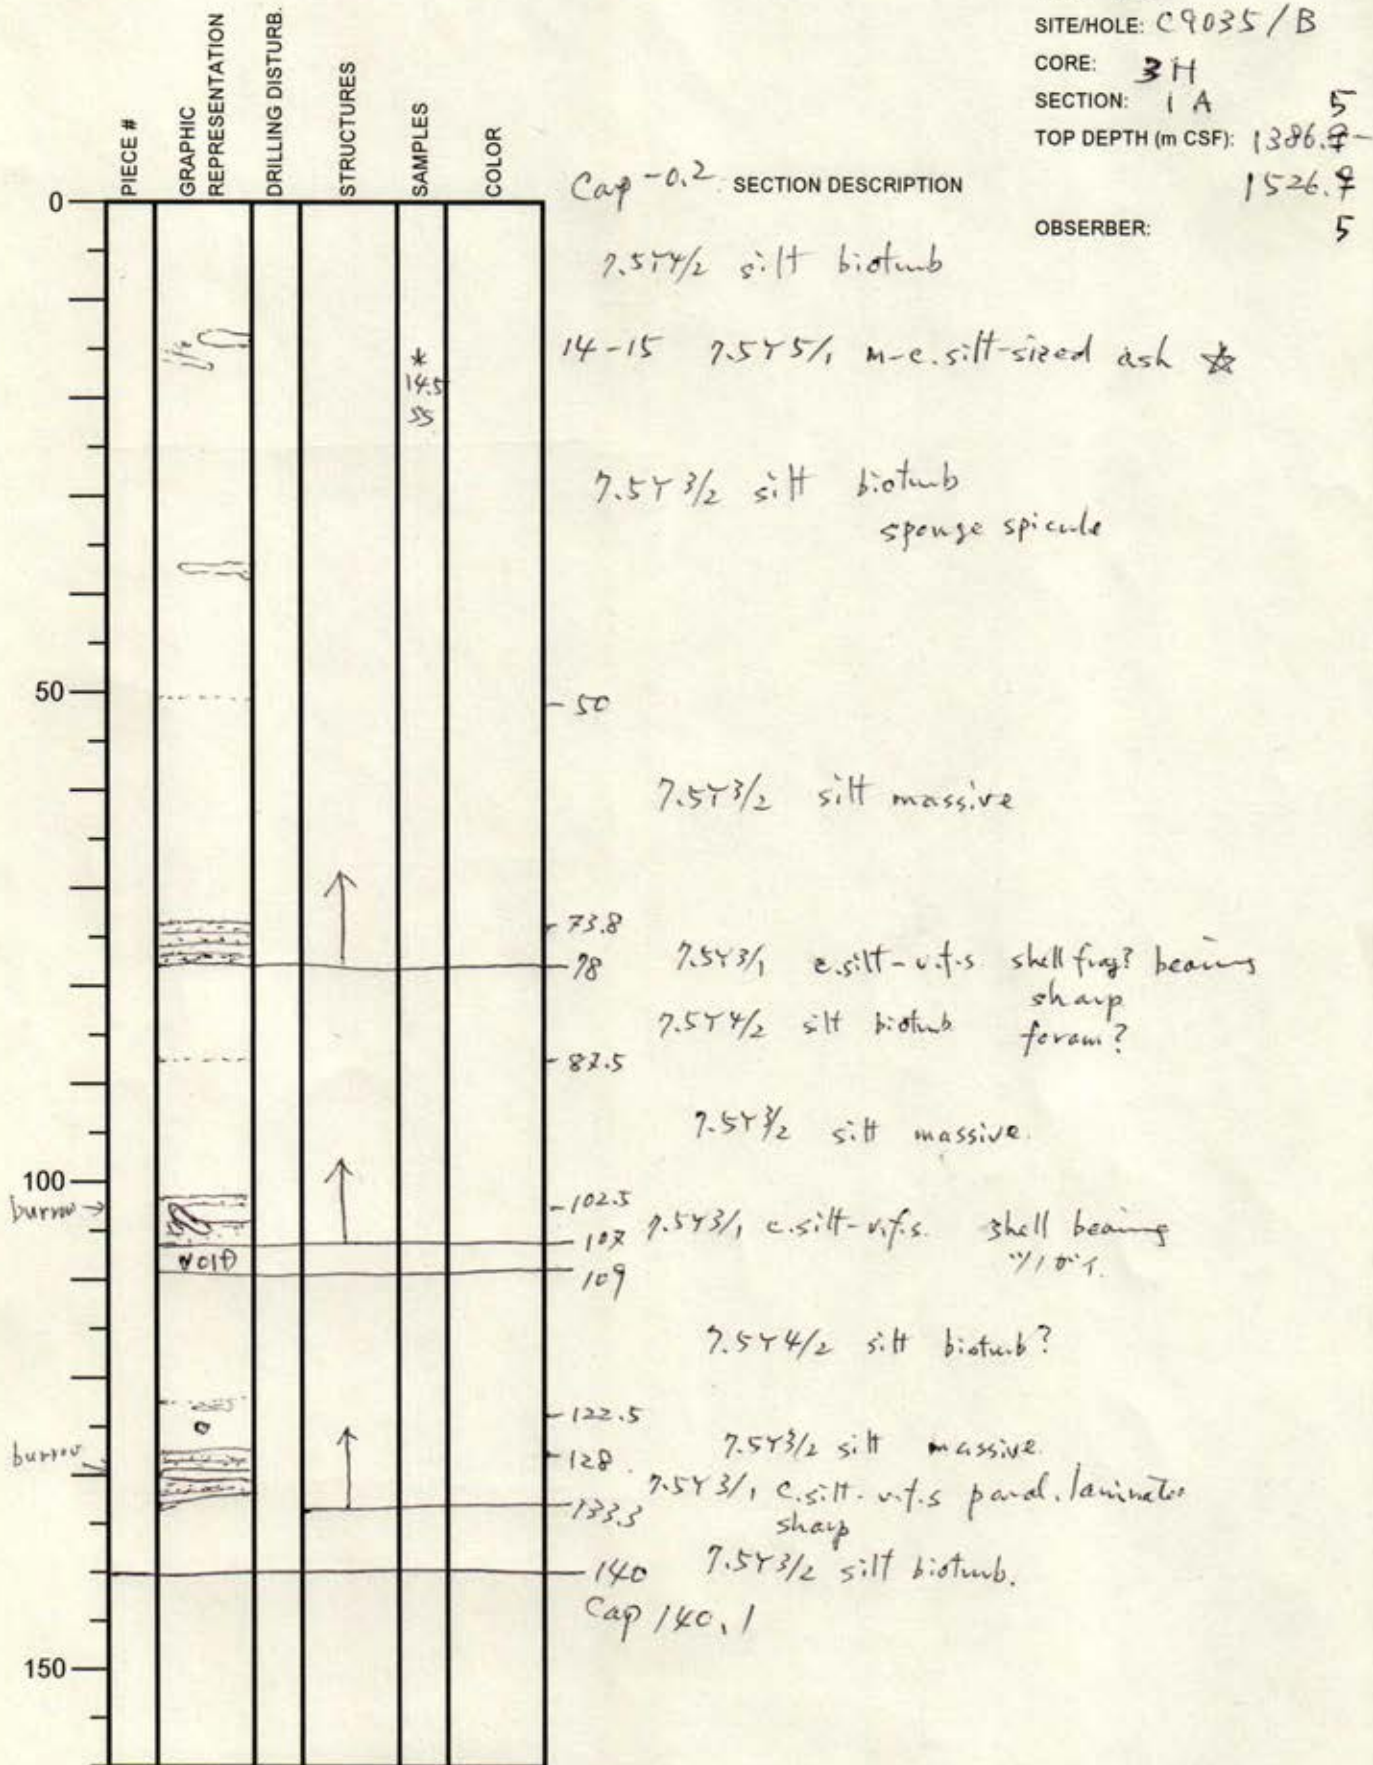 SITE/HOLE: C9035/B
CORE: 3H
SECTION: 1A
5
TOP DEPTH (m CSF): 1386.7-
1526.7
5
OBSERBER:
PIECE #
GRAPHIC REPRESENTATION
DRILLING DISTURB.
STRUCTURES
SAMPLES
COLOR
Cap -0.2 SECTION DESCRIPTION
0
7.5Y4/2 silt bioturb
14-15 7.5Y5/1 m-c.silt-sized ash ☆
*
14.5
SS
7.5Y3/2 silt bioturb
sponge spicule
50
50
7.5Y3/2 silt massive
73.8
78 7.5Y3/1 c.silt-v.f.s shell frag? bearing
sharp
7.5Y4/2 silt bioturb foram?
87.5
7.5Y3/2 silt massive.
100
burrow
102.5
107 7.5Y3/1 c.silt-v.f.s. shell bearing
ツノガイ.
VOID
109
7.5Y4/2 silt bioturb?
122.5
burrow
7.5Y3/2 silt massive.
128
7.5Y3/1 c.silt-v.f.s paral. laminated
133.3 sharp
140 7.5Y3/2 silt bioturb.
Cap 140.1
150